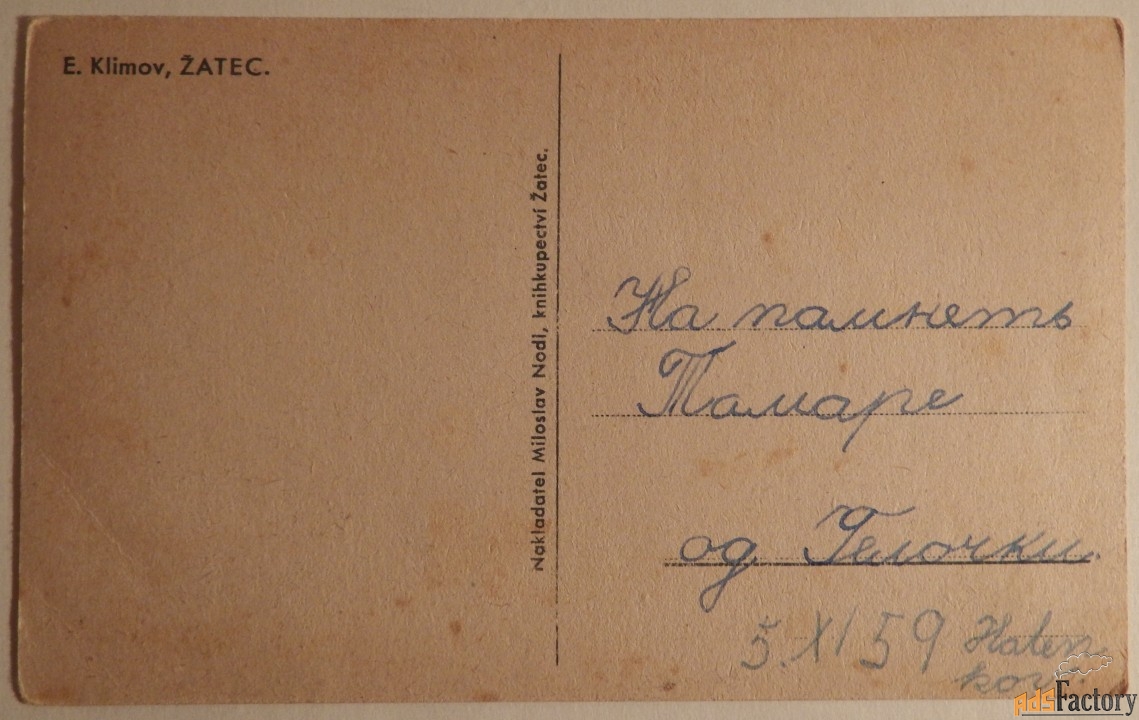 E. Klimov, ŽATEC.
Nakladatel Miloslav Nodl, knihkupectví Žatec.
На памнеть
Тамаре
од Гелочки.
5. XI 59
AdsFactory